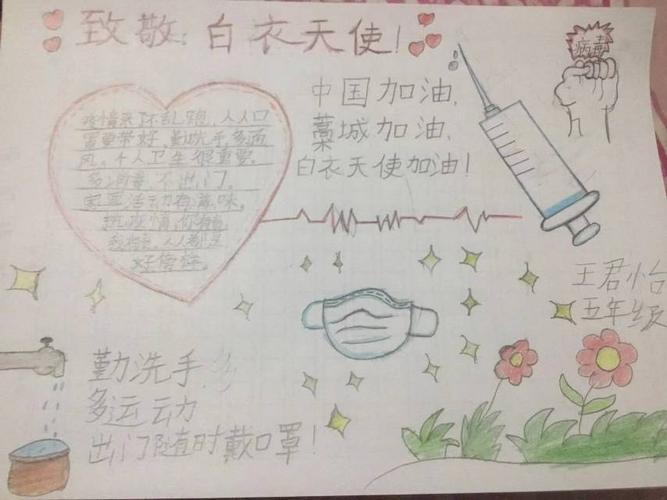 致敬:白衣天使!
病毒
中国加油,
藁城加油,
白衣天使加油!
疫情来了不乱跑,人人口
罩要带好,勤洗手,多通
风,个人卫生很重要。
多消毒,不出门。
家里活动有滋味。
抗疫情,你有我
人人都是
好榜样。
王君怡
五年级
勤洗手
多运动
出门随时戴口罩!